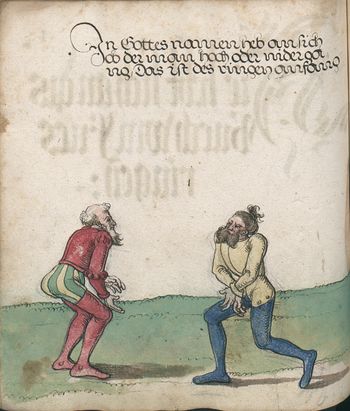 In Gottes namen heb an sich
Ob der man hoch oder nider ga
ng / Das ist des ringen anfang